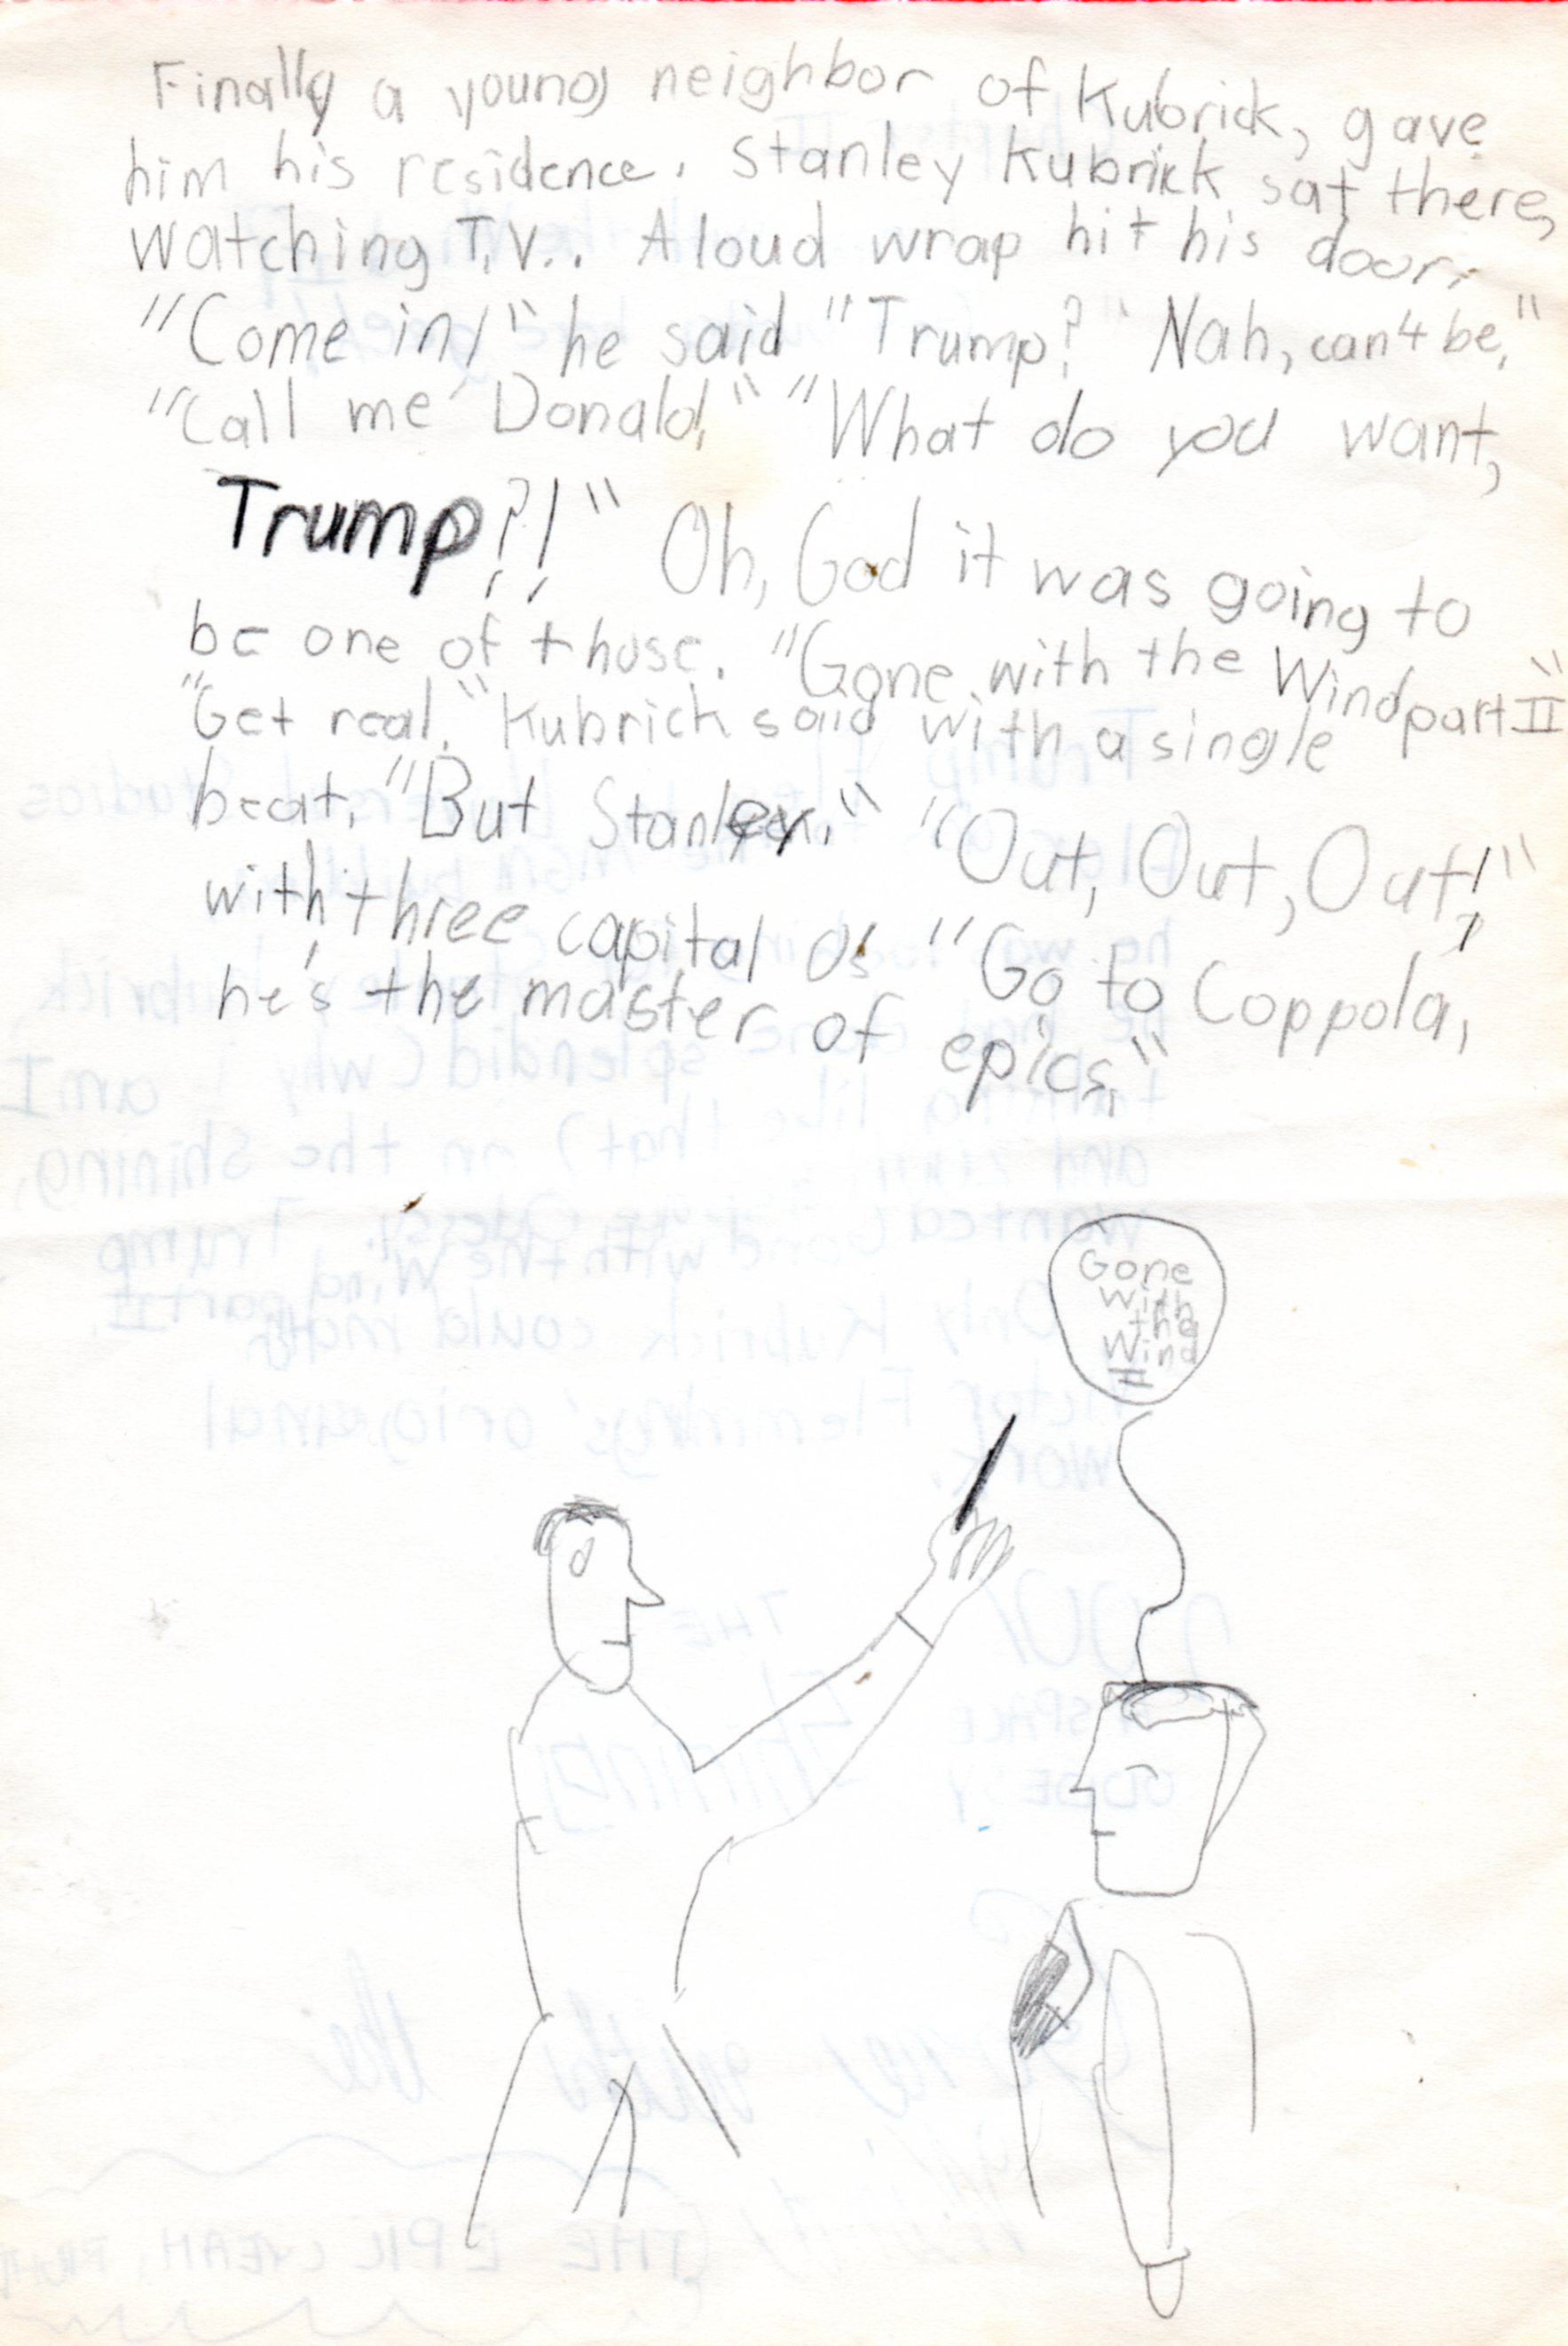 Finally a young neighbor of Kubrick, gave
him his residence. Stanley Kubrick sat there,
watching T.V.. A loud wrap hit his door.
"Come in!" he said "Trump?" Nah, can't be."
"Call me Donald." "What do you want,
Trump?!" Oh, God it was going to
be one of those. "Gone with the Wind part II"
"Get real." Kubrick said with a single
beat. "But Stanley." "Out, Out, Out!"
with three capital O's "Go to Coppola,
he's the master of epics."
Gone
With
the
Wind
II